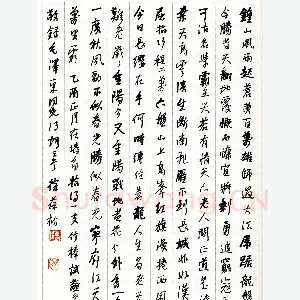 鐘山風雨起蒼黃百萬雄師過大江虎踞龍盤
今勝昔天翻地覆慨而慷宜將剩勇追窮寇不
可沽名學霸王天若有情天亦老人間正道是滄
桑天高雲淡望斷南飛雁不到長城非好漢
屈指行程二萬六盤山上高峰紅旗漫捲西風
今日長纓在手何時縛住蒼龍人生易老天
難老歲歲重陽今又重陽戰地黃花分外香
一度秋風勁不似春光勝似春光寥廓江天
萬里霜 乙酉正月
敬錄毛澤東同志詩詞三首